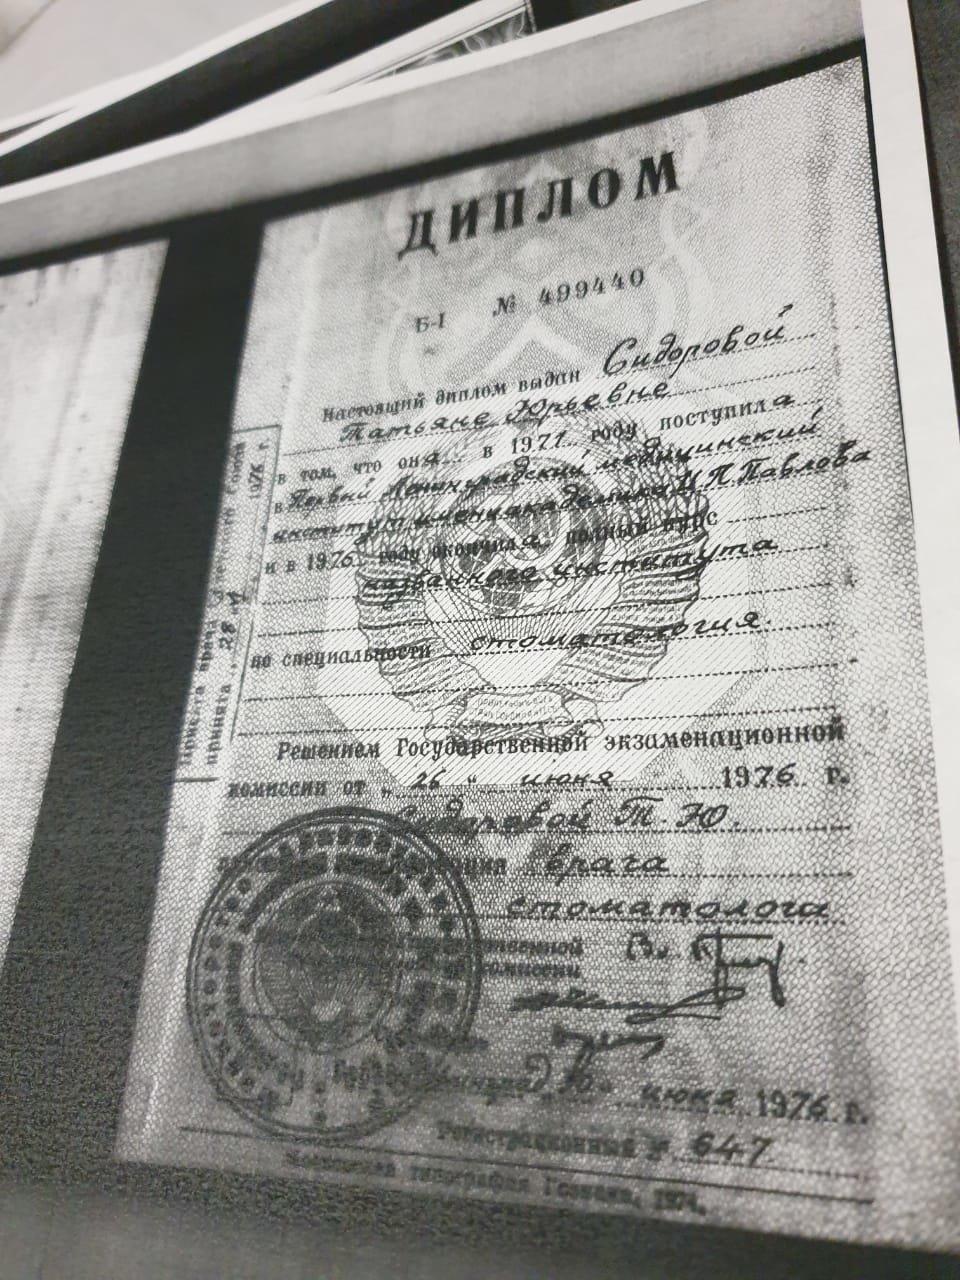 ДИПЛОМ
Б-I № 499440
Настоящий диплом выдан Сидоровой
Татьяне Юрьевне
в том, что она в 1971 году поступила
в Первый Ленинградский медицинский
институт имени академика И.П.Павлова
и в 1976 году окончила полный курс
названного института
по специальности стоматология
Решением Государственной экзаменационной
комиссии от „26" июня 1976 г.
Сидоровой Т.Ю.
врага
стоматолога
июня 1976 г.
Регистрационный № 647
типография Гознака, 1974.
Присяга врача Союза
принята 1976 г.